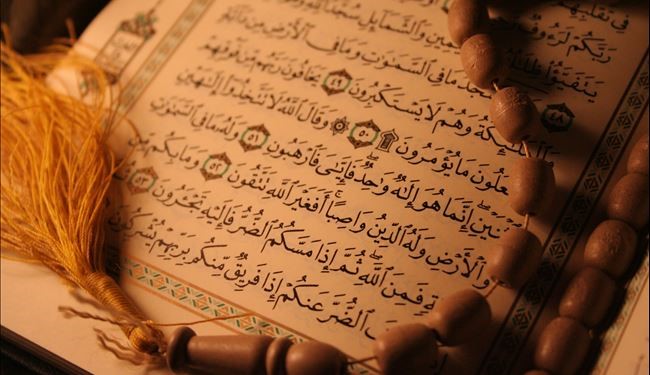 فِي تَقَلُّبِهِمْ
رَبَّكُمْ لَرَءُوفٌ
يَتَفَيَّؤُا ظِلَٰلُهُۥ ٱلْيَمِينِ وَٱلشَّمَآئِلِ سُجَّدًا لِّلَّهِ
يَسْجُدُ مَا فِى ٱلسَّمَٰوَٰتِ وَمَا فِى ٱلْأَرْضِ مِن دَآبَّةٍ
وَٱلْمَلَٰٓئِكَةُ وَهُمْ لَا يَسْتَكْبِرُونَ ٤٩ يَخَافُونَ رَبَّهُم مِّن فَوْقِهِمْ
وَيَفْعَلُونَ مَا يُؤْمَرُونَ ۩ ٥٠ ۞ وَقَالَ ٱللَّهُ لَا تَتَّخِذُوٓا۟ إِلَٰهَيْنِ
ٱثْنَيْنِ إِنَّمَا هُوَ إِلَٰهٌ وَٰحِدٌ فَإِيَّٰىَ فَٱرْهَبُونِ ٥١ وَلَهُۥ مَا فِى ٱلسَّمَٰوَٰتِ
وَٱلْأَرْضِ وَلَهُ ٱلدِّينُ وَاصِبًا أَفَغَيْرَ ٱللَّهِ تَتَّقُونَ ٥٢ وَمَا بِكُم مِّن
فَمِنَ ٱللَّهِ ثُمَّ إِذَا مَسَّكُمُ ٱلضُّرُّ فَإِلَيْهِ تَجْـَٔرُونَ ٥٣
ٱلضُّرَّ عَنكُمْ إِذَا فَرِيقٌ مِّنكُم بِرَبِّهِمْ يُشْرِكُونَ